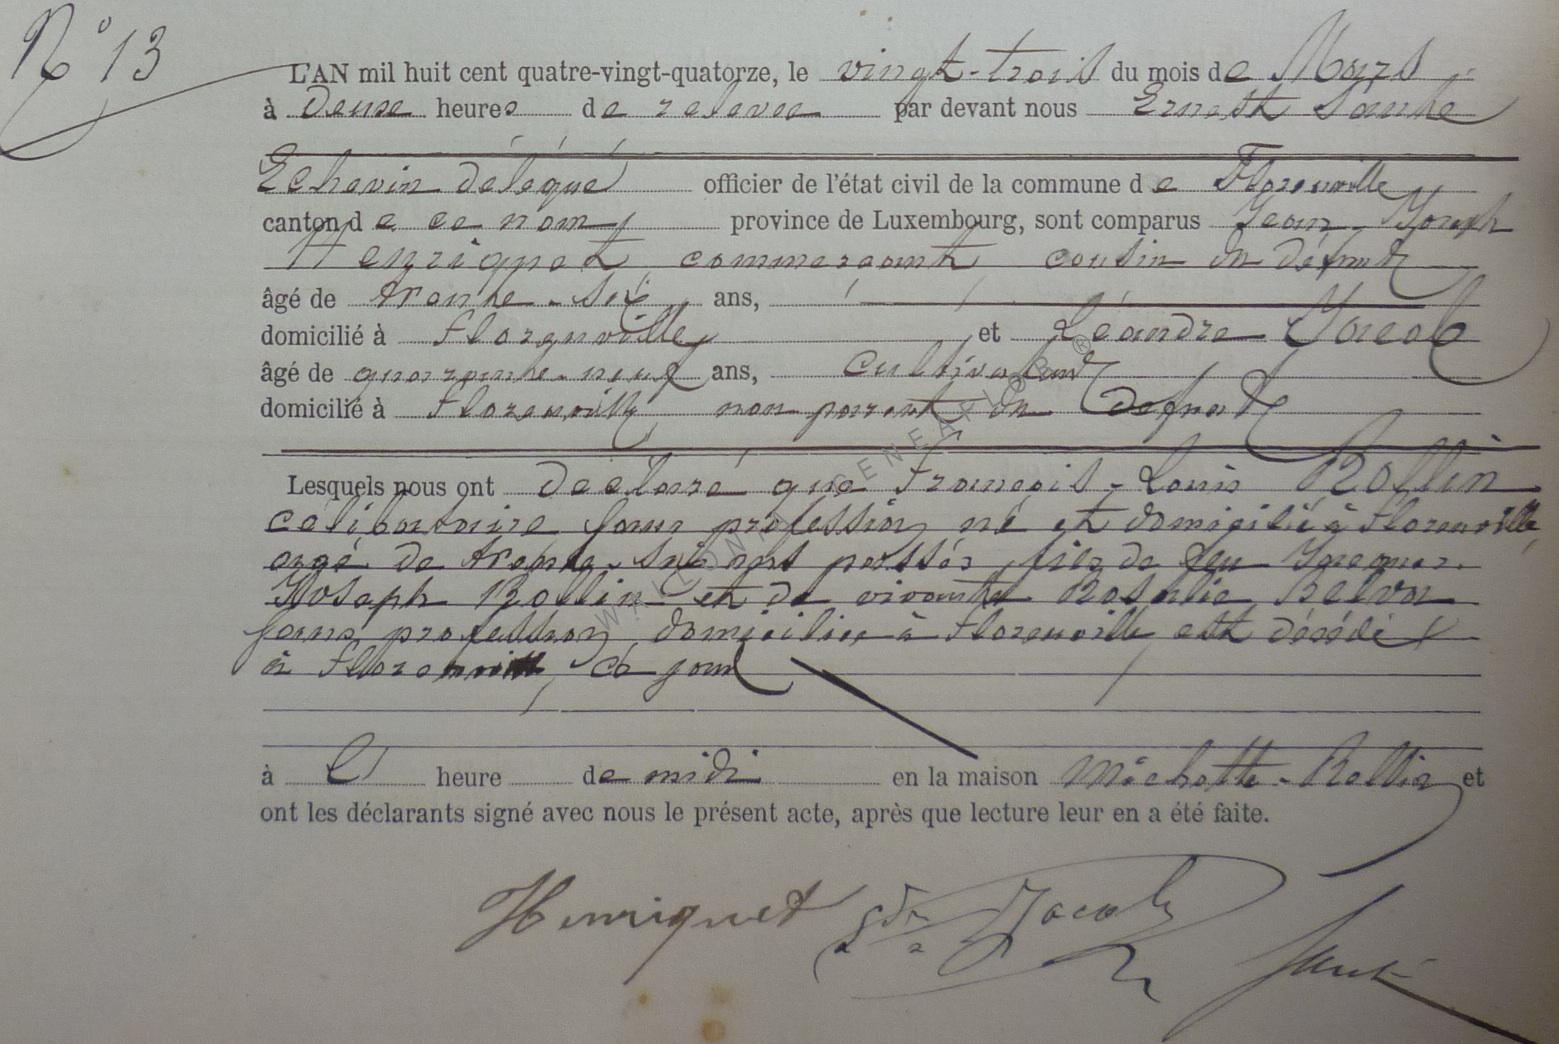 N° 13
L'AN mil huit cent quatre-vingt-quatorze, le vingt-trois du mois de Mars
à deux heures de relevée par devant nous Ernest
Echevin délégué officier de l'état civil de la commune de Florenville
canton de ce nom province de Luxembourg, sont comparus Jean-Joseph
Henriquet commercant cousin du défunt
âgé de trente-six ans,
domicilié à Florenville et Léandre Jacob
âgé de quarante-neuf ans, cultivateur
domicilié à Florenville non parent du défunt
Lesquels nous ont déclaré que François-Louis Rollin
célibataire sans profession né et domicilié à Florenville,
agé de trente-six ans passés, fils de feu Jacques-
Joseph Rollin et de vivante Rosalie
sans profession domiciliée à Florenville est décédé
à Florenville, ce jour
à heure de midi en la maison Michotte-Rollin et
ont les déclarants signé avec nous le présent acte, après que lecture leur en a été faite.
Henriquet Jacob